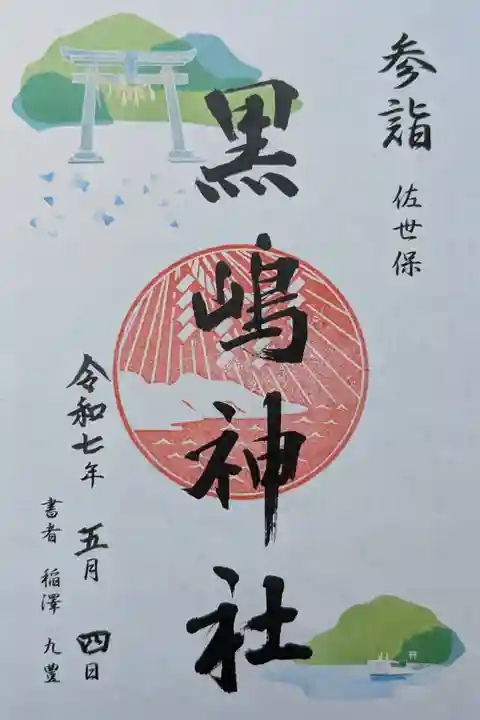 参詣 佐世保
黒嶋神社
令和七年 五月 四日
書者 稲澤 九豊